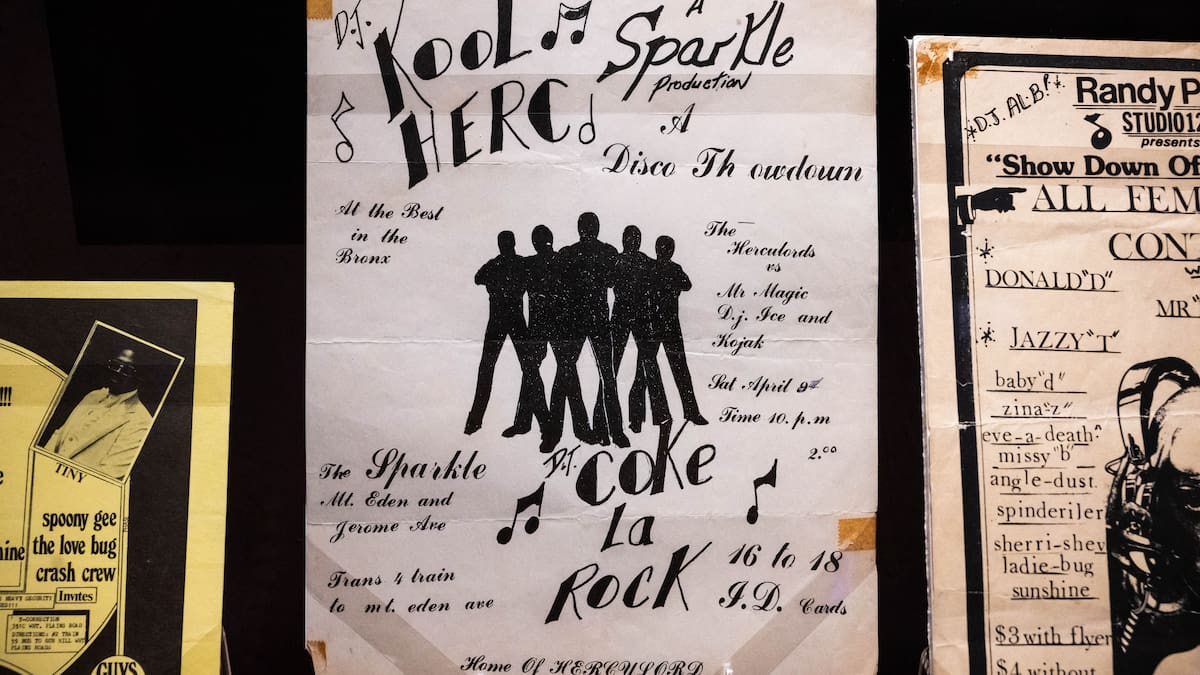 !!!
TINY
spoony gee
the love bug
crash crew
HEAVY SECURITY
Invites
T-CONNECTION
GUYS
D.J.
KOOL
HERC
A
Sparkle
Production
A
Disco Th owdown
At the Best
in the
Bronx
The
Herculords
vs
Mr Magic
D.j. Ice and
Kojak
Sat April 9
Time 10. p.m
2.00
The Sparkle
Mt. Eden and
Jerome Ave
D.J.
COKE
La
ROCK
Trans 4 train
to mt. eden ave
16 to 18
I.D. Cards
Home Of HERCULORD
D.J. AL-B!
Randy P
STUDIO12
presents
"Show Down Of
ALL FEM
CONT
DONALD"D"
MR"
JAZZY"T"
baby"d"
zina"z"
eve-a-death
missy"b"
angle-dust.
spinderiler
sherri-shey
ladie-bug
sunshine
$3 with flyer
$4 without